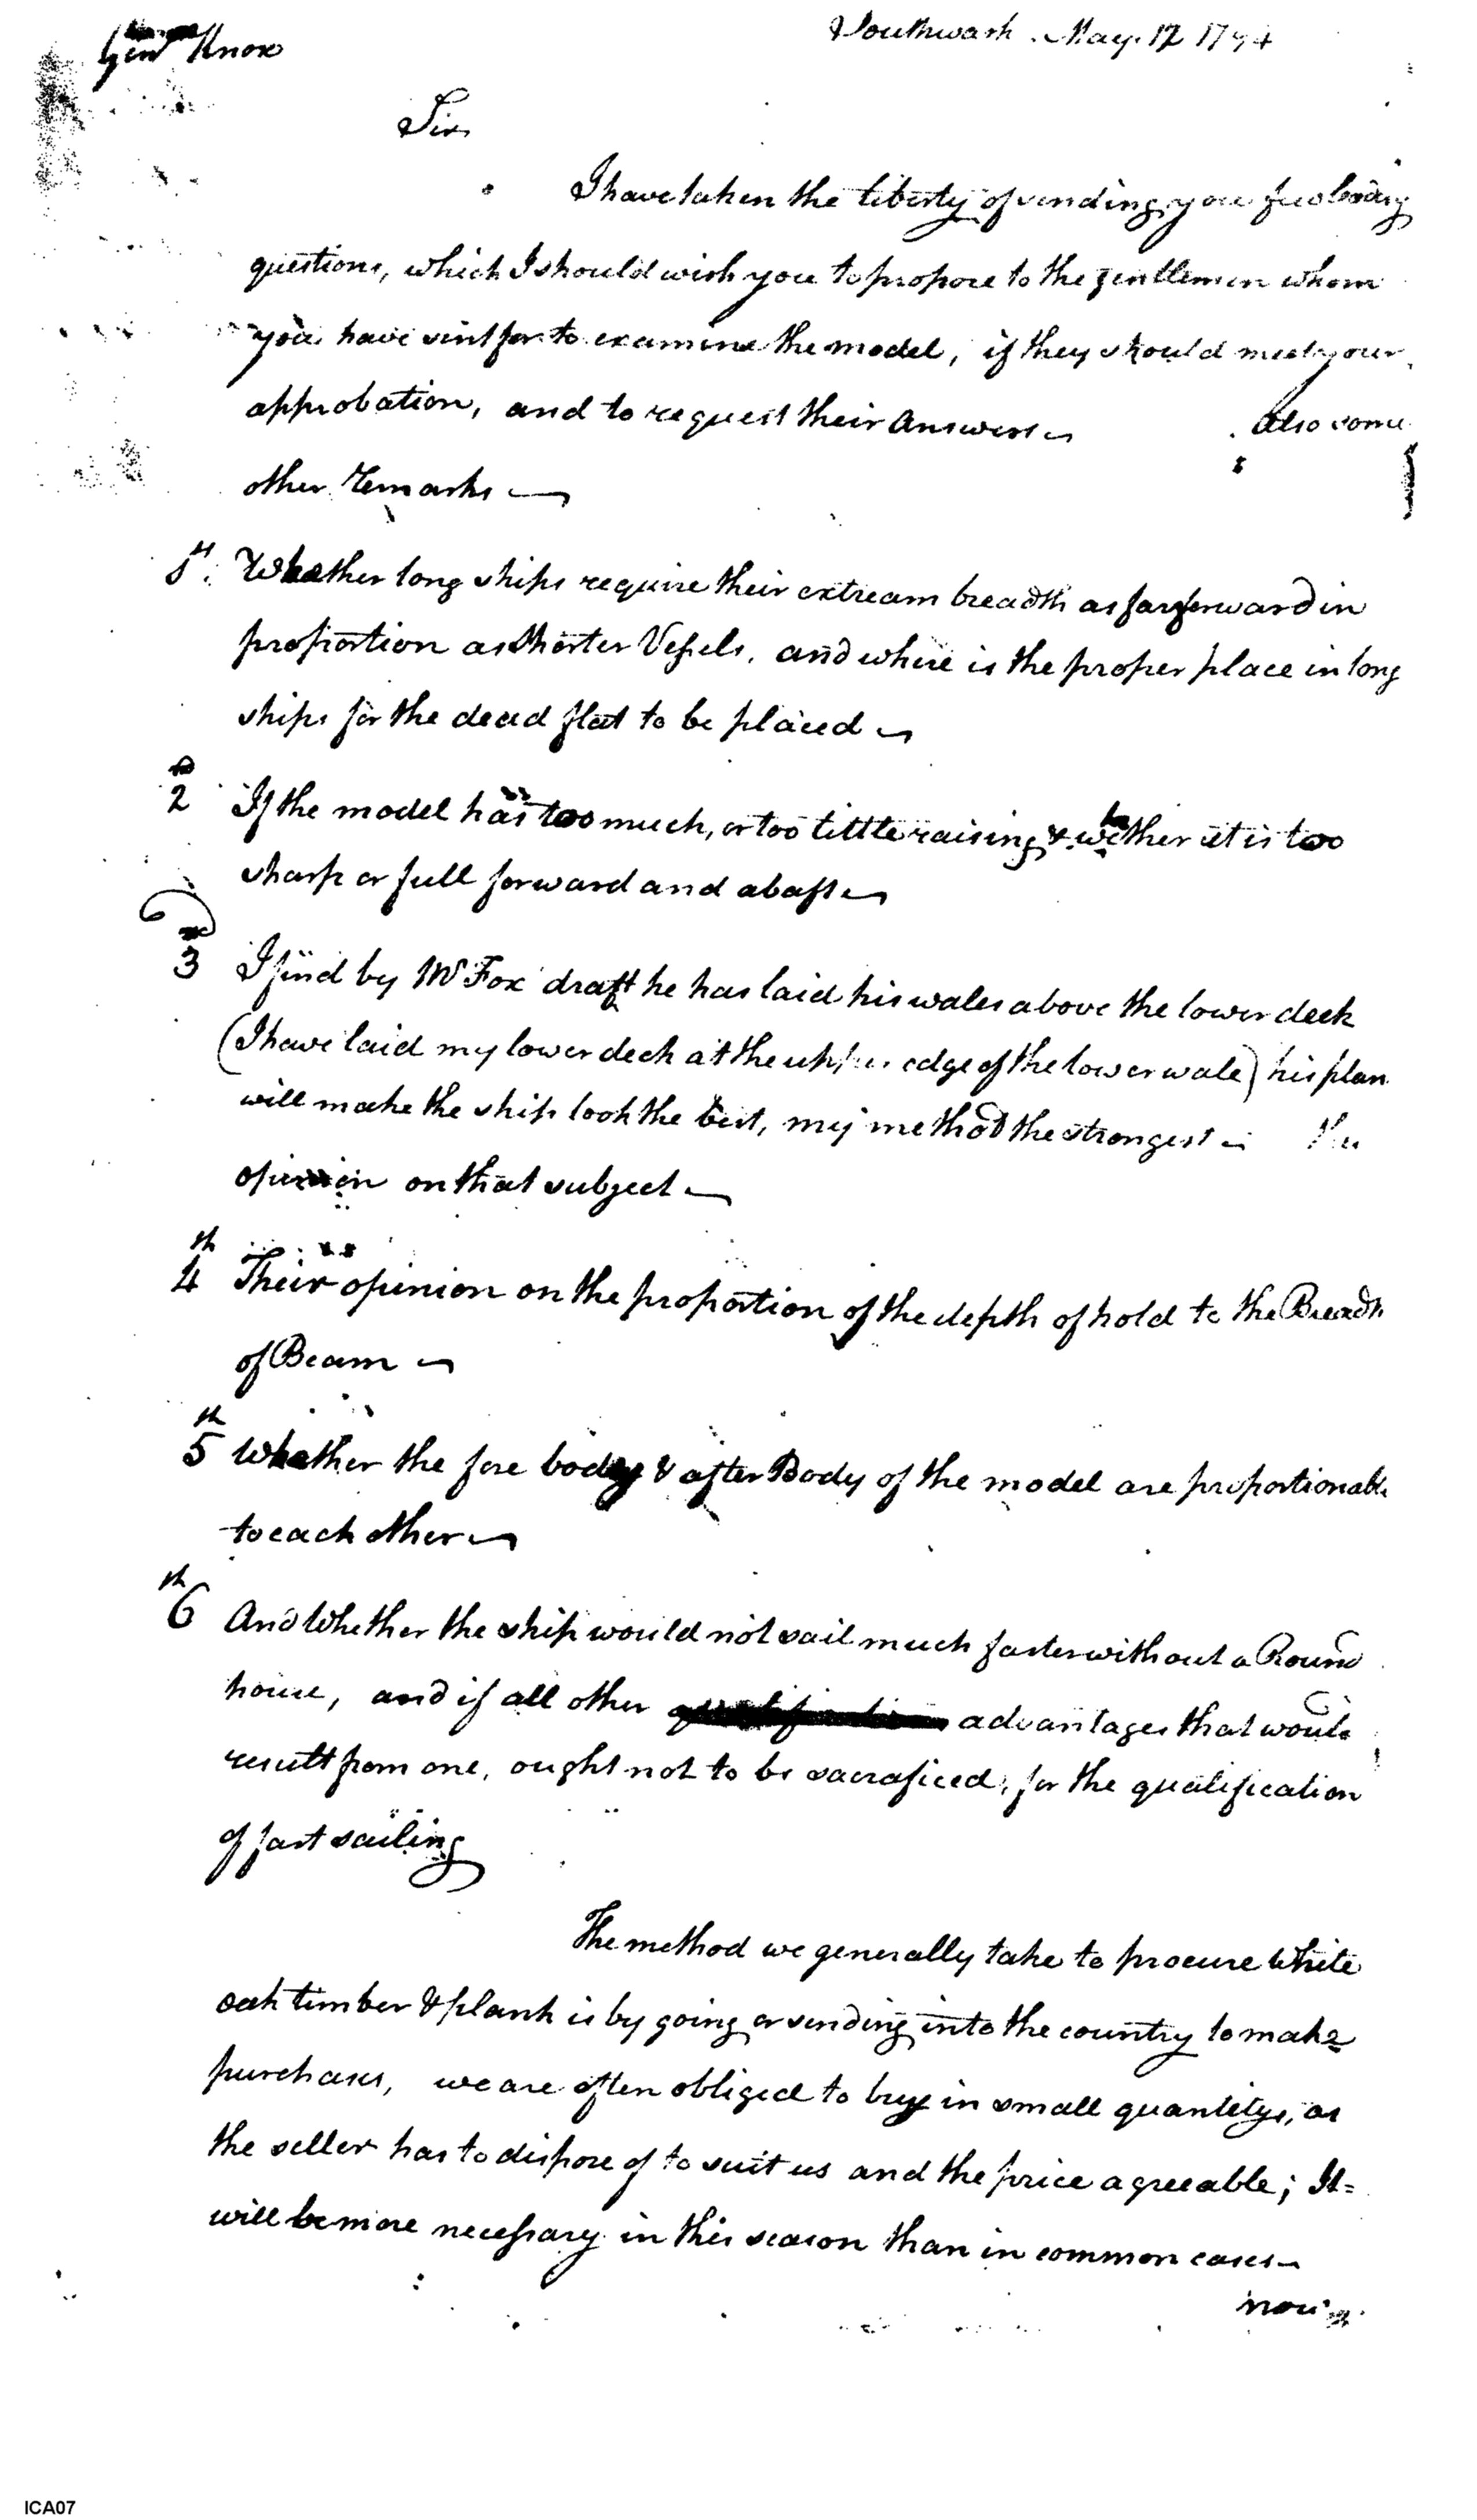 Southwark May 12 1794
Genl Knox
Sir
I have taken the liberty of sending you few leading
questions, which I should wish you to propose to the gentlemen whom
you have sent for to examine the model, if they should meet your
approbation, and to request their Answers Also some
other remarks
1st Whether long ships require their extream breadth as far forward in
proportion as shorter Vessels, and where is the proper place in long
ships for the dead flat to be placed
2d If the model has too much, or too little raising & wether it is too
sharp or full forward and abaft
3 I find by Mr Fox draft he has laid his wales above the lower deck
(I have laid my lower deck at the upper edge of the lower wale) his plan
will make the ship look the best, my method the strongest
opinion on that subject
4th Their opinion on the proportion of the depth of hold to the Breadth
of Beam
5th Whether the fore body & after Body of the model are proportionable
to each other
6th And Whether the ship would not sail much faster without a Round
house, and if all other advantages that would
result from one, ought not to be sacraficed, for the qualification
of fast sailing
The method we generally take to procure White
oak timber & plank is by going or sending into the country to make
purchases, we are often obliged to buy in small quantitys, as
the seller has to dispose of to suit us and the price agreeable; It=
will be more necessary in this season than in common cases
now
ICA07